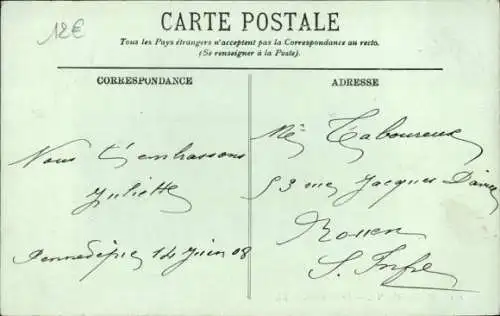 12€
CARTE POSTALE
Tous les Pays étrangers n'acceptent pas la Correspondance au recto.
(Se renseigner à la Poste).
CORRESPONDANCE
ADRESSE
Nous t'embrassons
Juliette
Pennedépie 14 Juin 08
Taboureux
53 rue Jacques Daviel
Rouen
S. Infre